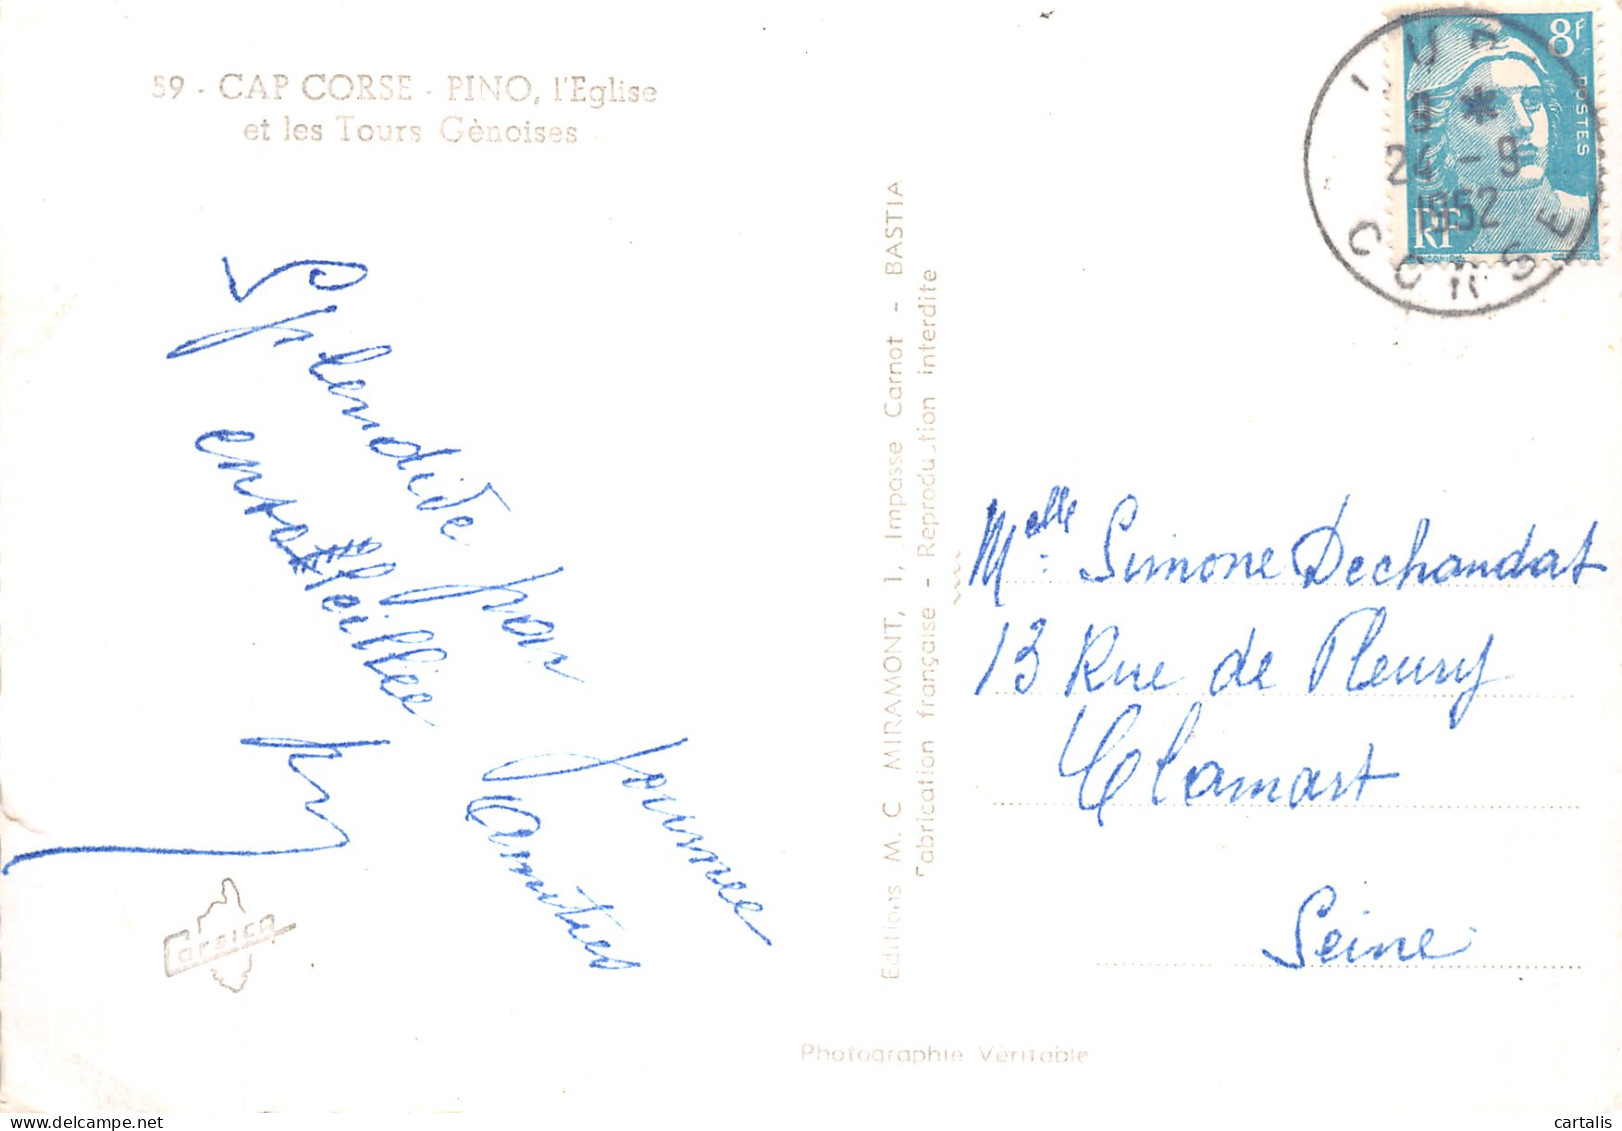 59 - CAP CORSE - PINO, l'Eglise
et les Tours Gènoises
8F
POSTES
RF
LURI
9 *
24 - 9
1952
CORSE
Splendide par
journee
ensoleillée
Amitiés
Corsica
Editions M. C MIRAMONT, 1, Impasse Carnot - BASTIA
Fabrication française - Reproduction interdite
Melle Simone Dechandat
13 Rue de Fleury
Clamart
Seine
Photographie Véritable
cartalis
www.delcampe.net